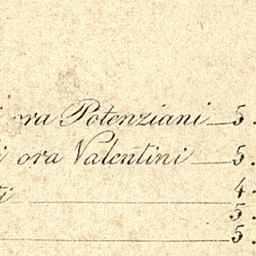 i ora Potenziani — 5.
i ora Valentini — 5.
ti — 4.
5.
5.